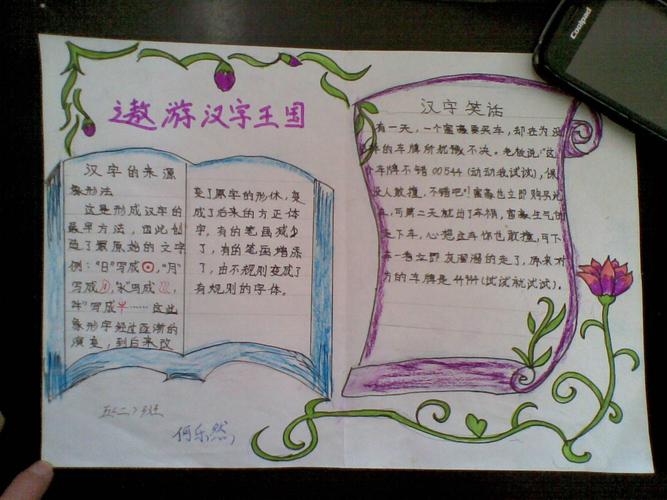 遨游汉字王国
汉字的来源
象形法
这是形成汉字的
最早方法，因此创
造了最原始的文字
例："日"写成 ，"月"
写成 ，"水"写成 ，
"牛"写成 ……这些
象形字经过逐渐的
演变，到后来改
变了原字的形体，变
成了后来的方正体
字，有的笔画减少
了，有的笔画增添
了，由不规则变成了
有规则的字体。
汉字笑话
有一天，一个富豪要买车，却在为选
车的车牌所犹豫不决。老板说："这
个车牌不错 00544 (动动我试试)，保
没人敢撞，不错吧！富豪也立即购买此
车，可第二天就出了车祸，富豪生气的
走下车，心想这车你也敢撞，可下
车一看立即灰溜溜的走了，原来对
方的车牌是 44944 (试试就试试)。
五(二)班
何乐然
Coolpad